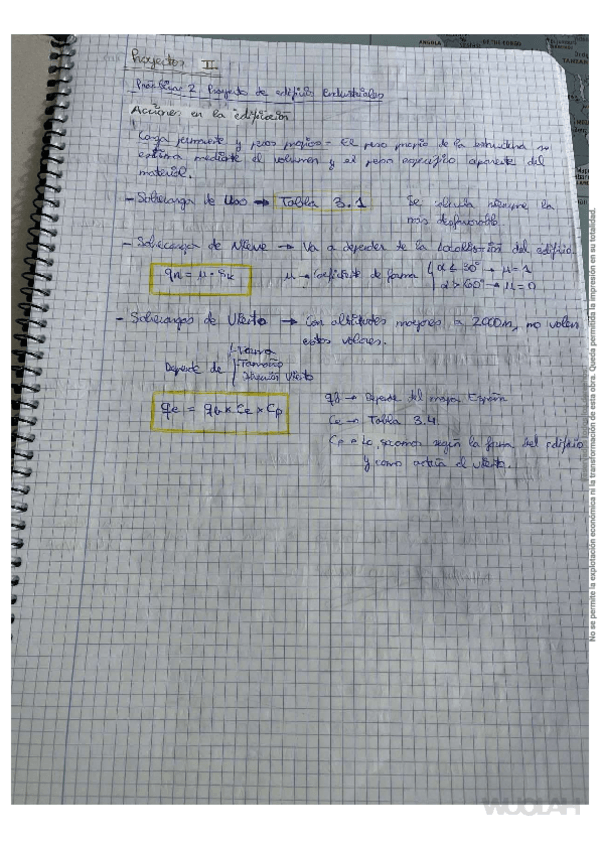 Proyectos II.
Prácticas 2 Proyecto de edificios industriales
Acciones en la edificación
Carga permanente y peso propio = El peso propio de la estructura se
estima mediante el volumen y el peso específico aparente del
material.
- Sobrecarga de Uso → Tabla 3.1
Se calcula siempre la
más desfavorable
- Sobrecarga de Nieve → Va a depender de la localización del edificio.
qn = μ · Sk
μ → Coeficiente de forma { α ≤ 30° → μ = 1
α > 60° → μ = 0
- Sobrecargas de Viento → Con altitudes mayores a 2000m, no valen
estos valores.
Depende de { Forma
Tamaño
Dirección Viento
qe = qb x Ce x Cp
qb → Depende del mapa España
Ce → Tabla 3.4.
Cp = Lo sacamos según la forma del edificio
y como actúa el viento.
No se permite la explotación económica ni la transformación de esta obra. Queda permitida la impresión en su totalidad.
ANGOLA
WUOLAH